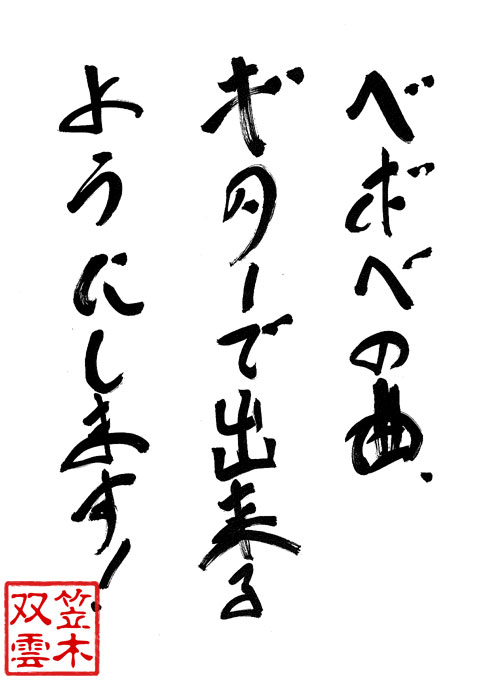 ベボベの曲、
ギターで出来る
ようにします!
笠木
双雲